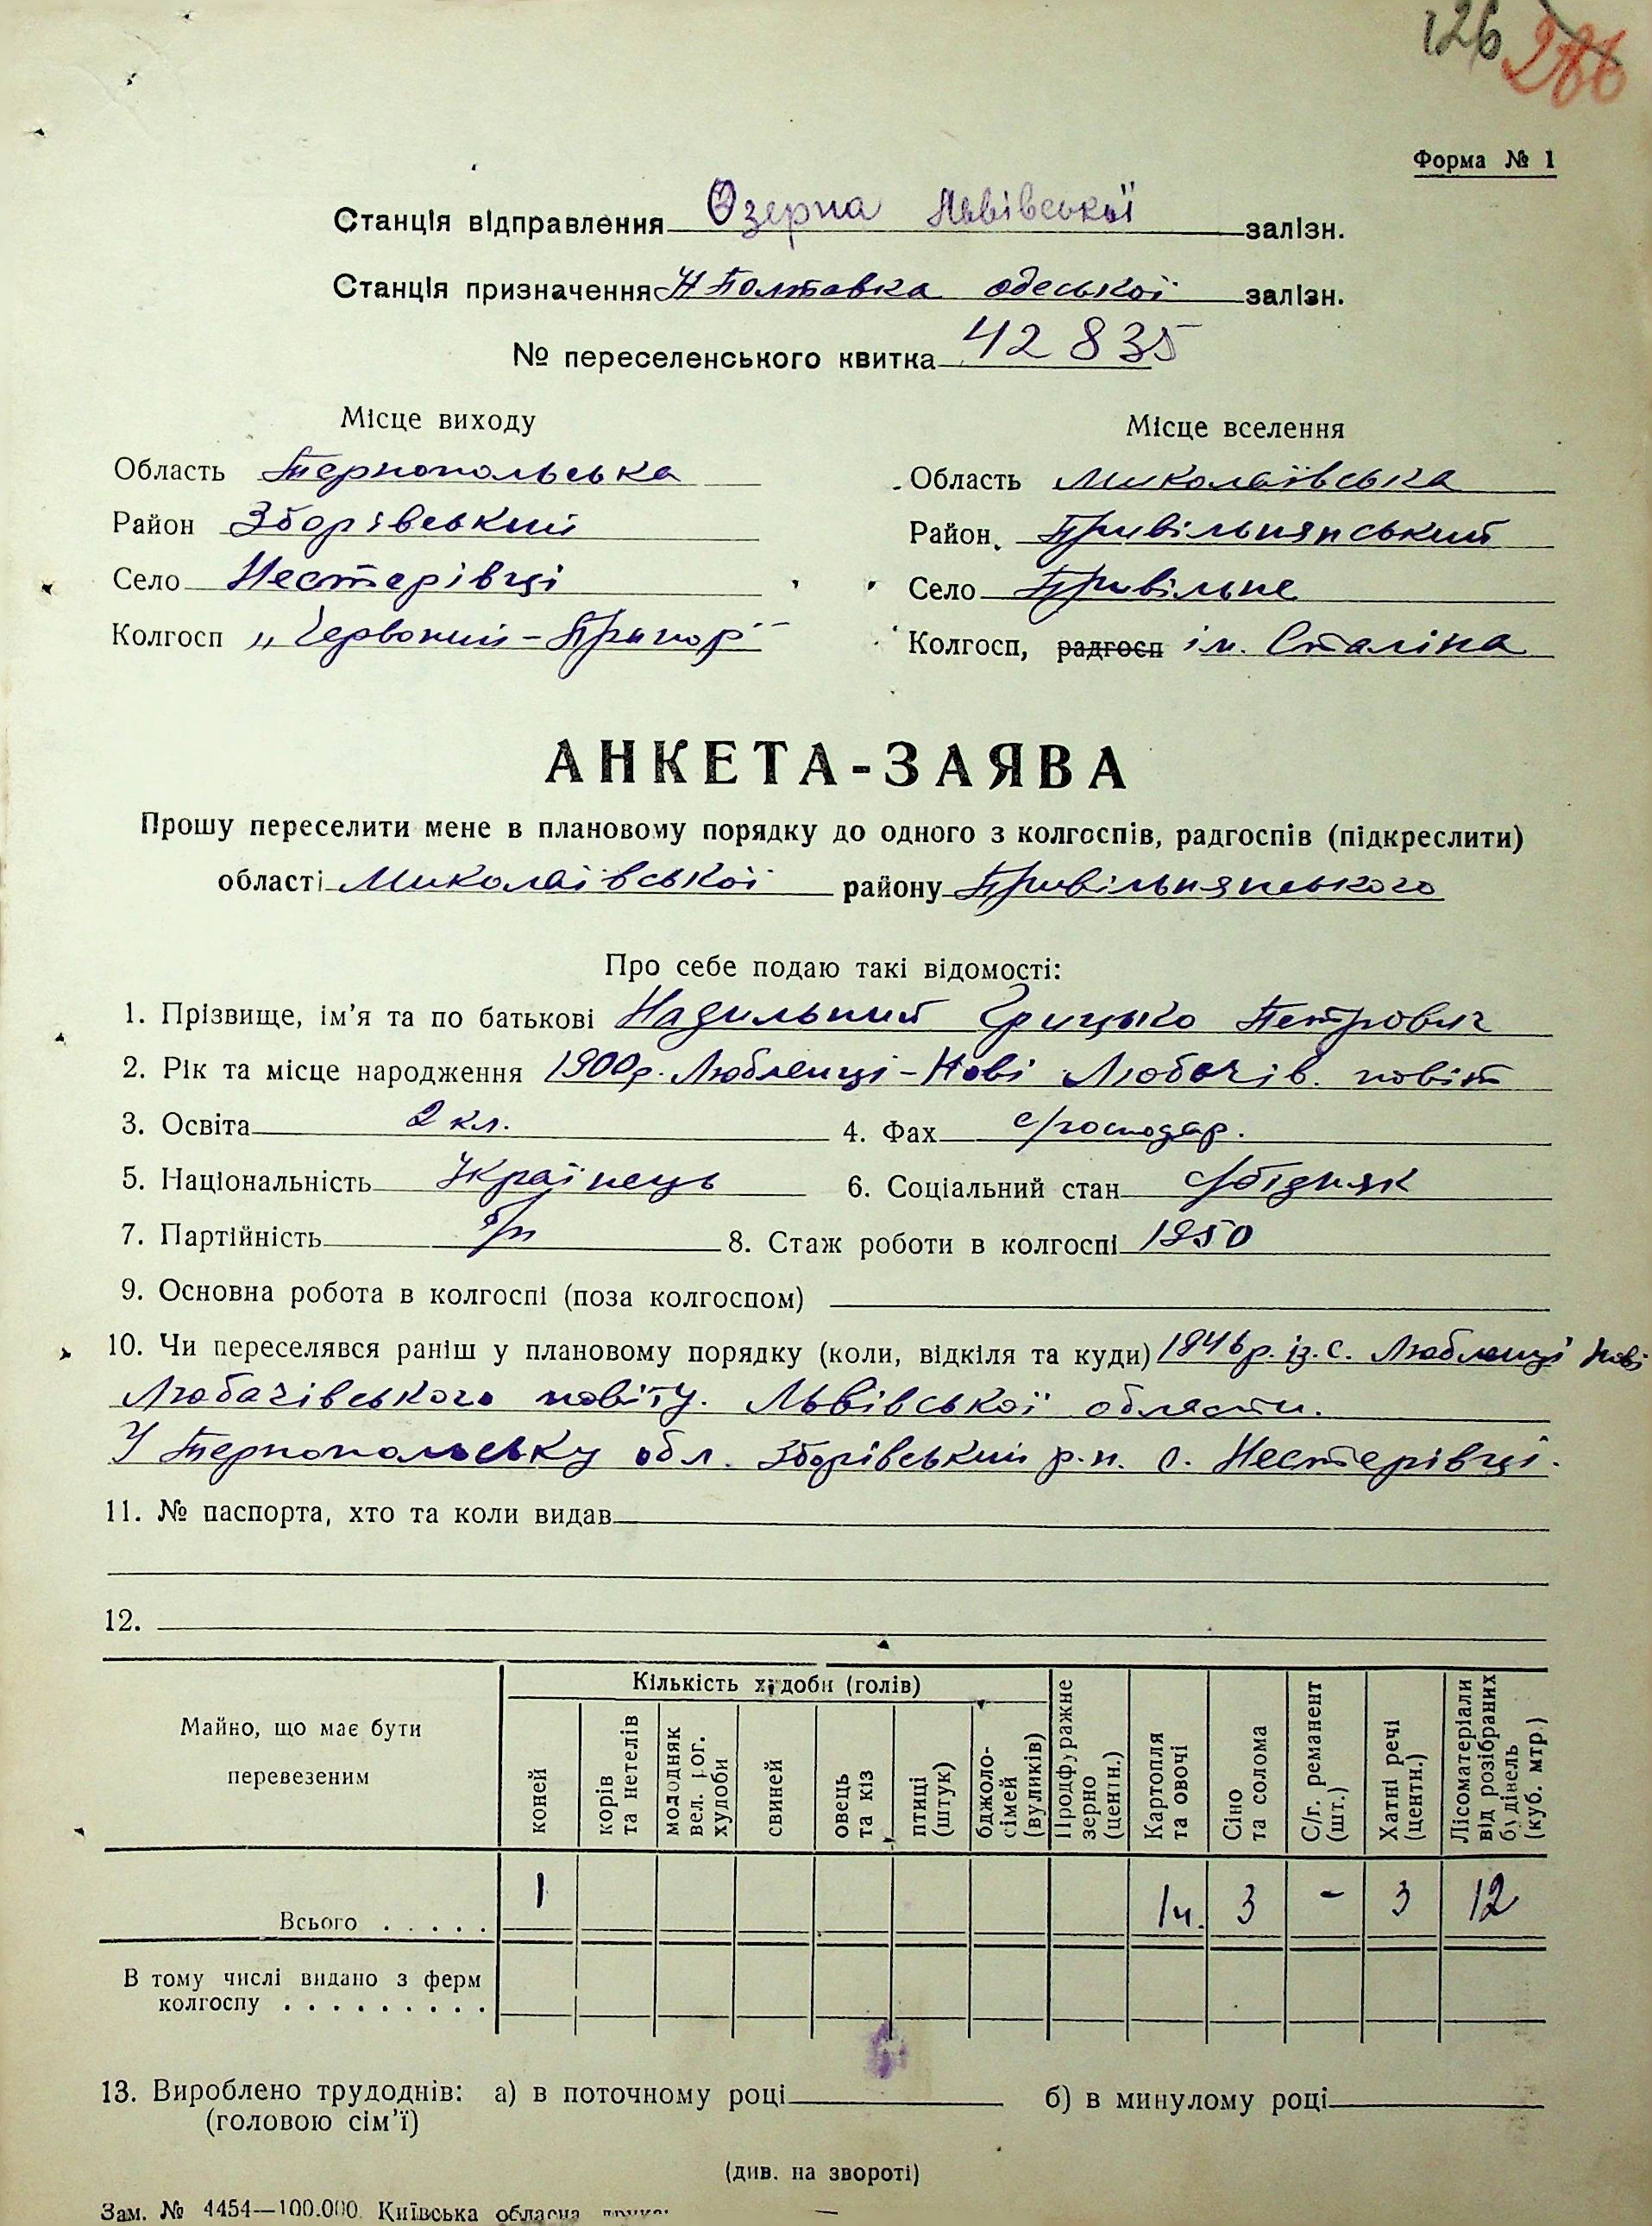 126 286
Форма № 1
Станція відправлення Озерна Львівської залізн.
Станція призначення Н Полтавка одеської залізн.
№ переселенського квитка 42 835
Місце виходу Місце вселення
Область Тернопольська Область Миколаївська
Район Зборівський Район Привільнянський
Село Нестерівці Село Привільне
Колгосп „Червоний-Прапор" Колгосп, радгосп ім. Сталіна
АНКЕТА-ЗАЯВА
Прошу переселити мене в плановому порядку до одного з колгоспів, радгоспів (підкреслити)
області Миколаївської району Привільнянського
Про себе подаю такі відомості:
1. Прізвище, ім'я та по батькові Надильний Грицько Петрович
2. Рік та місце народження 1900р. Любленці-Нові Любачів. повіт
3. Освіта 2 кл. 4. Фах с/господар.
5. Національність Українець 6. Соціальний стан с/бідняк
7. Партійність б/п 8. Стаж роботи в колгоспі 1950
9. Основна робота в колгоспі (поза колгоспом)
10. Чи переселявся раніш у плановому порядку (коли, відкіля та куди) 1946р. із. с. Любленці Нові
Любачівського повіту. Львівської области.
У Тернопольську обл. Зборівський р.н. с. Нестерівці.
11. № паспорта, хто та коли видав
12.
Майно, що має бути перевезеним
Кількість худоби (голів)
коней
корів та нетелів
молодняк вел. рог. худоби
свиней
овець та кіз
птиці (штук)
бджоло-сімей (вуликів)
Продфуражне зерно (центн.)
Картопля та овочі
Сіно та солома
С/г. реманент (шт.)
Хатні речі (центн.)
Лісоматеріали від розібраних будівель (куб. мтр.)
Всього . . . . . 1 1ц. 3 - 3 12
В тому числі видано з ферм
колгоспу . . . . . . . . .
13. Вироблено трудоднів: а) в поточному році б) в минулому році
(головою сім'ї)
(див. на звороті)
Зам. № 4454—100.000. Київська обласна